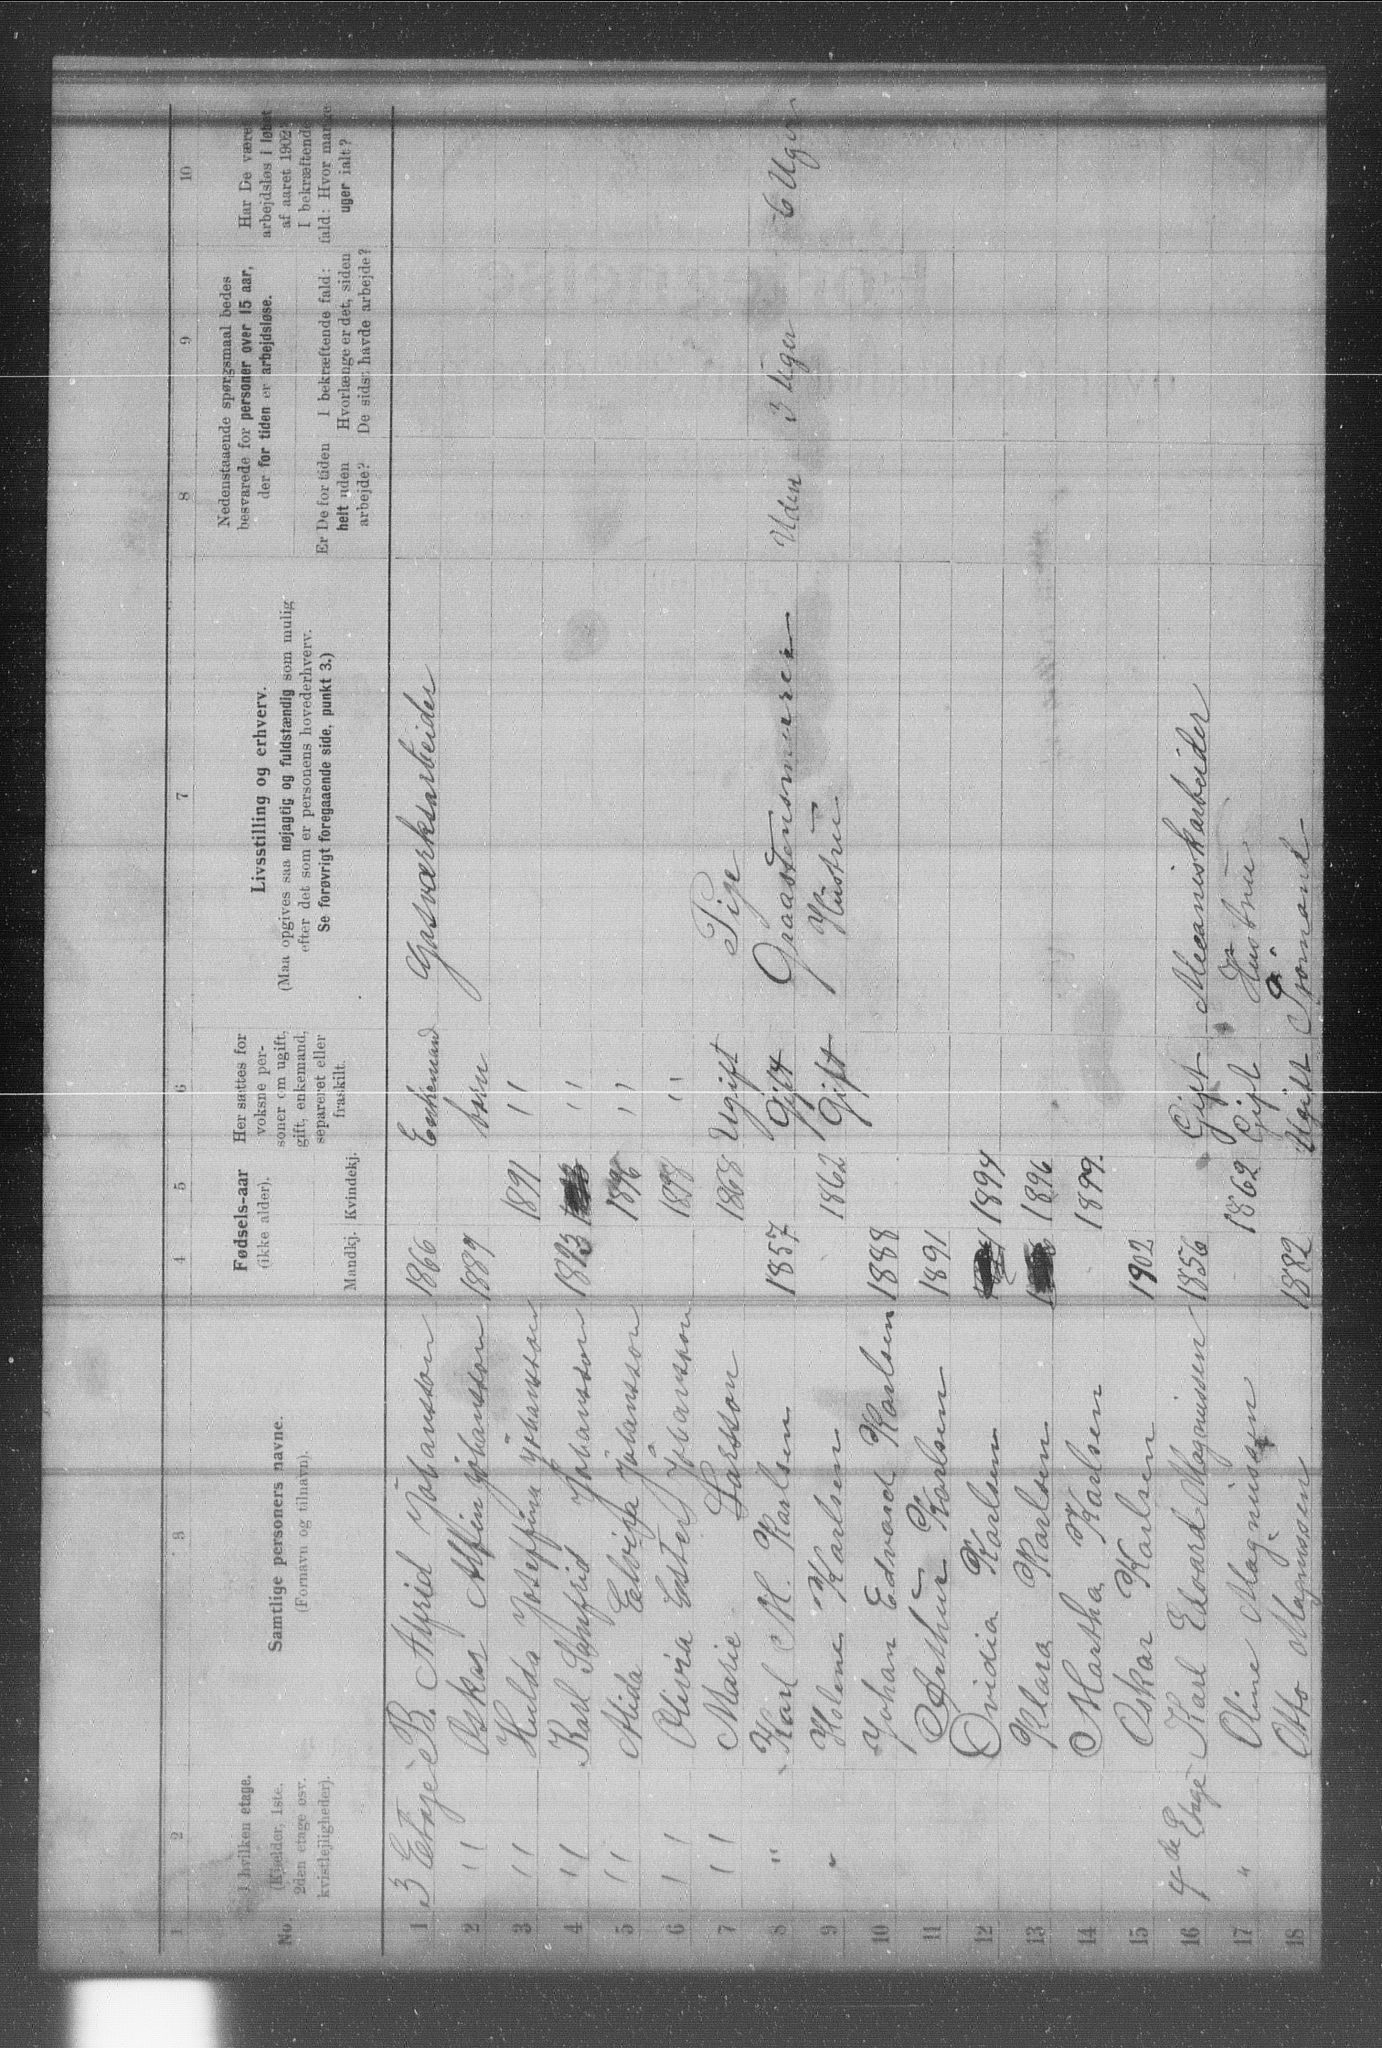 1 2 3 4 5 6 7 8 9 10
No.
I hvilken etage.
(Kjelder, 1ste,
2den etage osv.
kvistlejligheder).
Samtlige personers navne.
(Fornavn og tilnavn).
Fødsels-aar
(ikke alder).
Mandkj. Kvindekj.
Her sættes for
voksne per-
soner om ugift,
gift, enkemand,
separeret eller
fraskilt.
Livsstilling og erhverv.
(Maa opgives saa nøjagtig og fuldstændig som mulig
efter det som er personens hovederhverv.
Se forøvrigt foregaaende side, punkt 3.)
Nedenstaaende spørgsmaal bedes
besvarede for personer over 15 aar,
der for tiden er arbejdsløse.
Er De for tiden
helt uden
arbejde?
I bekræftende fald:
Hvorlænge er det, siden
De sidst havde arbejde?
Har De været
arbejdsløs i løbet
af aaret 1902?
I bekræftende
fald: Hvor mange
uger ialt?
1 3 Etage B. Alfrid Johansson 1866 Enkemand Gasværksarbeider
2 " Oskar Alfin Johansson 1889 barn
3 " Hulda Joseffina Johansson 1891 "
4 " Karl Johansson 1893 "
5 " Alida Elviga Johansson 1896 "
6 " Olivia Ester Johansson 1898 "
7 " Marie Larsson 1868 Ugift Pige
8 " Karl M. Karlsen 1857 Gift Graastensmurer Uden 3 Uger 6 Uger
9 " Helene Karlsen 1862 Gift Hustru
10 Johan Edvard Karlsen 1888
11 Arthur Karlsen 1891
12 Ovidia Karlsen 1894
13 Klara Karlsen 1896
14 Martha Karlsen 1899.
15 Oskar Karlsen 1902
16 4de Etage Karl Edvard Magnussen 1856 Gift Mecaniskarbeider
17 " Oline Magnussen 1862 Gift Hustru
18 Otto Magnussen 1882 Ugift